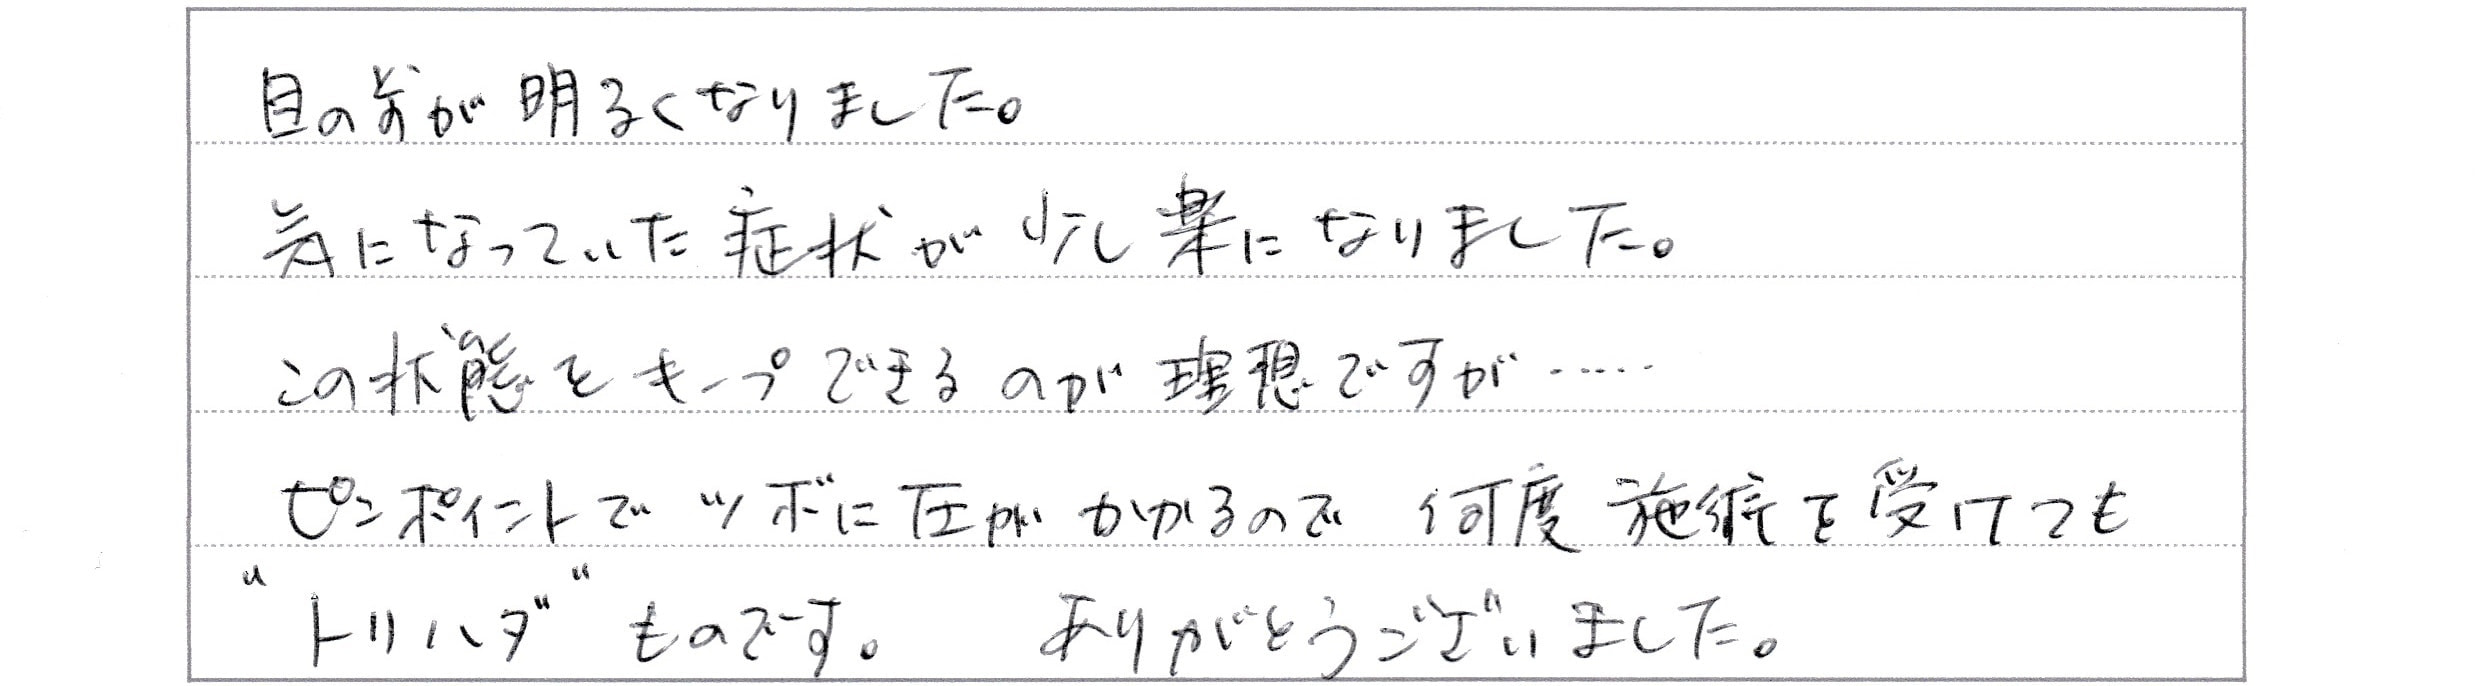 目の前が明るくなりました。
気になっていた症状が少し楽になりました。
この状態をキープできるのが理想ですが……
ピンポイントでツボに圧がかかるので何度施術を受けても
“トリハダ“ものです。 ありがとうございました。